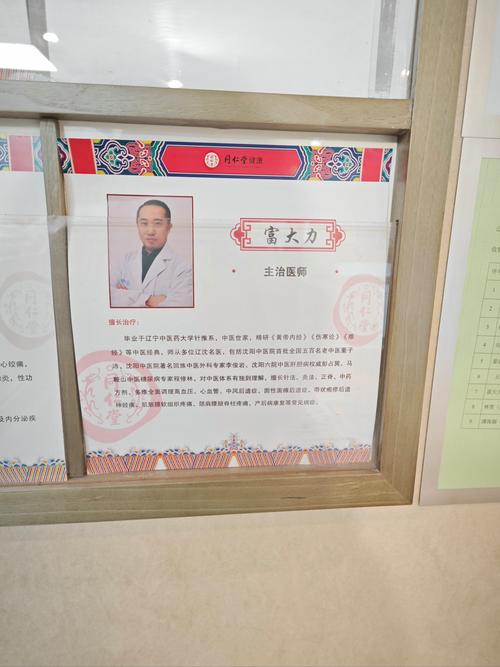 同仁堂健康
富大力
主治医师
擅长治疗：
毕业于辽宁中医药大学针推系，中医世家，精研《黄帝内经》《伤寒论》《难
经》等中医经典，师从多位辽沈名医，包括沈阳中医院首批全国五百名老中医董子
沛，沈阳中医院著名回族中医外科专家李俊岩，沈阳六院中医肝胆病权威彭占冀，马
鞍山中医糖尿病专家程修林，对中医体系有独到理解，擅长针法、灸法、正脊、中药
方剂，多维全面调理高血压、心血管，中风后遗症，面性面瘫后遗症，带状疱疹后遗
神经疼，肌筋膜软组织疼痛，颈肩腰腿脊柱疼痛，产后病康复等常见病症。
同仁堂
同仁堂
心绞痛，
性功
及内分泌疾